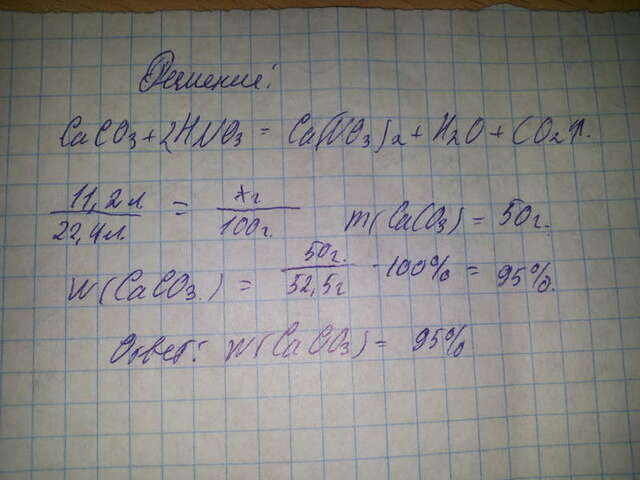 Решение:
CaCO3 + 2HNO3 = Ca(NO3)2 + H2O + CO2↑.
11,2л / 22,4л. = xг / 100г. m(CaCO3) = 50г.
W(CaCO3.) = 50г. / 52,5г · 100% = 95%.
Ответ: W(CaCO3) = 95%